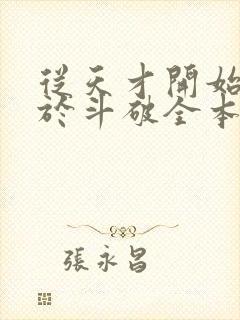 從天才開始
於斗破全本
張永昌